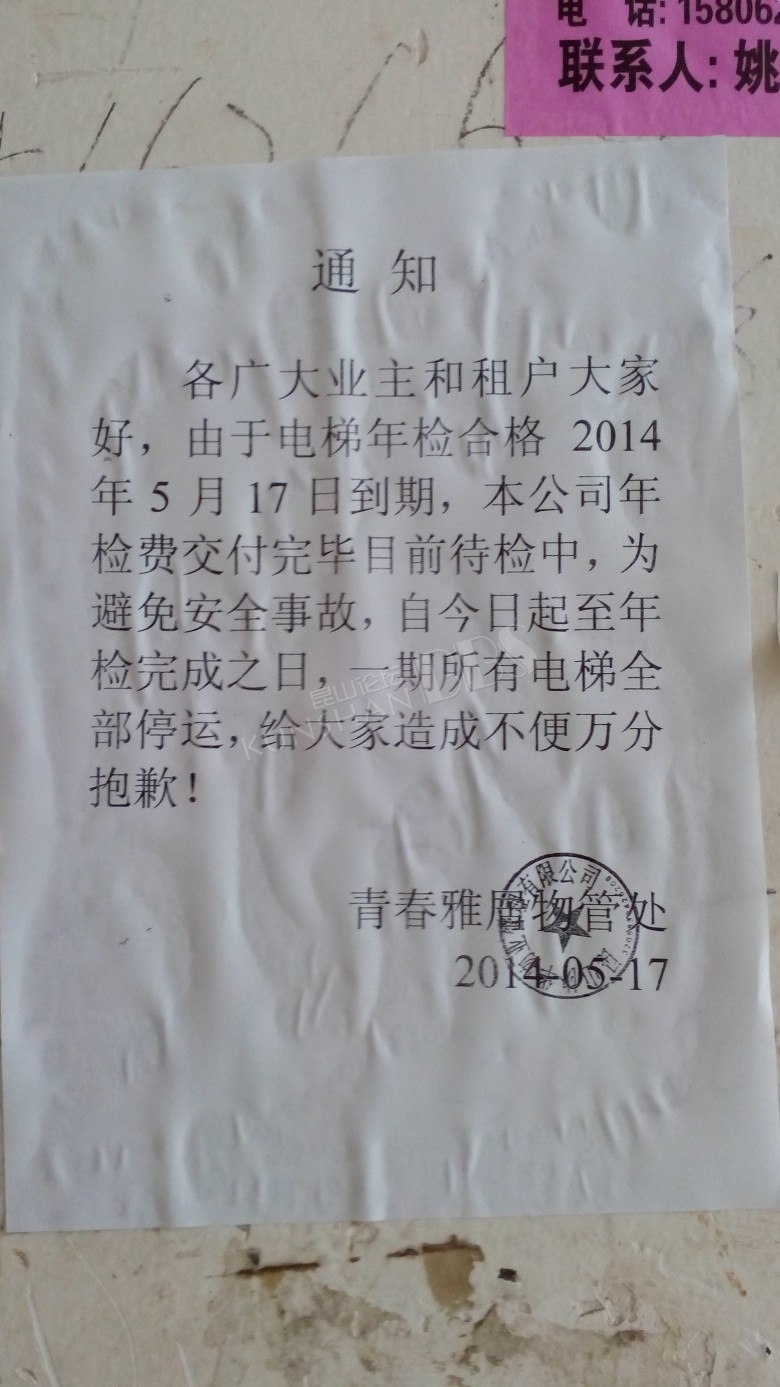 电 话: 15806
联系人: 姚
通 知
各广大业主和租户大家
好，由于电梯年检合格 2014
年 5 月 17 日到期，本公司年
检费交付完毕目前待检中，为
避免安全事故，自今日起至年
检完成之日，一期所有电梯全
部停运，给大家造成不便万分
抱歉！
昆山论坛
KUNSHAN BBS
青春雅居物管处
2014-05-17
有限公司